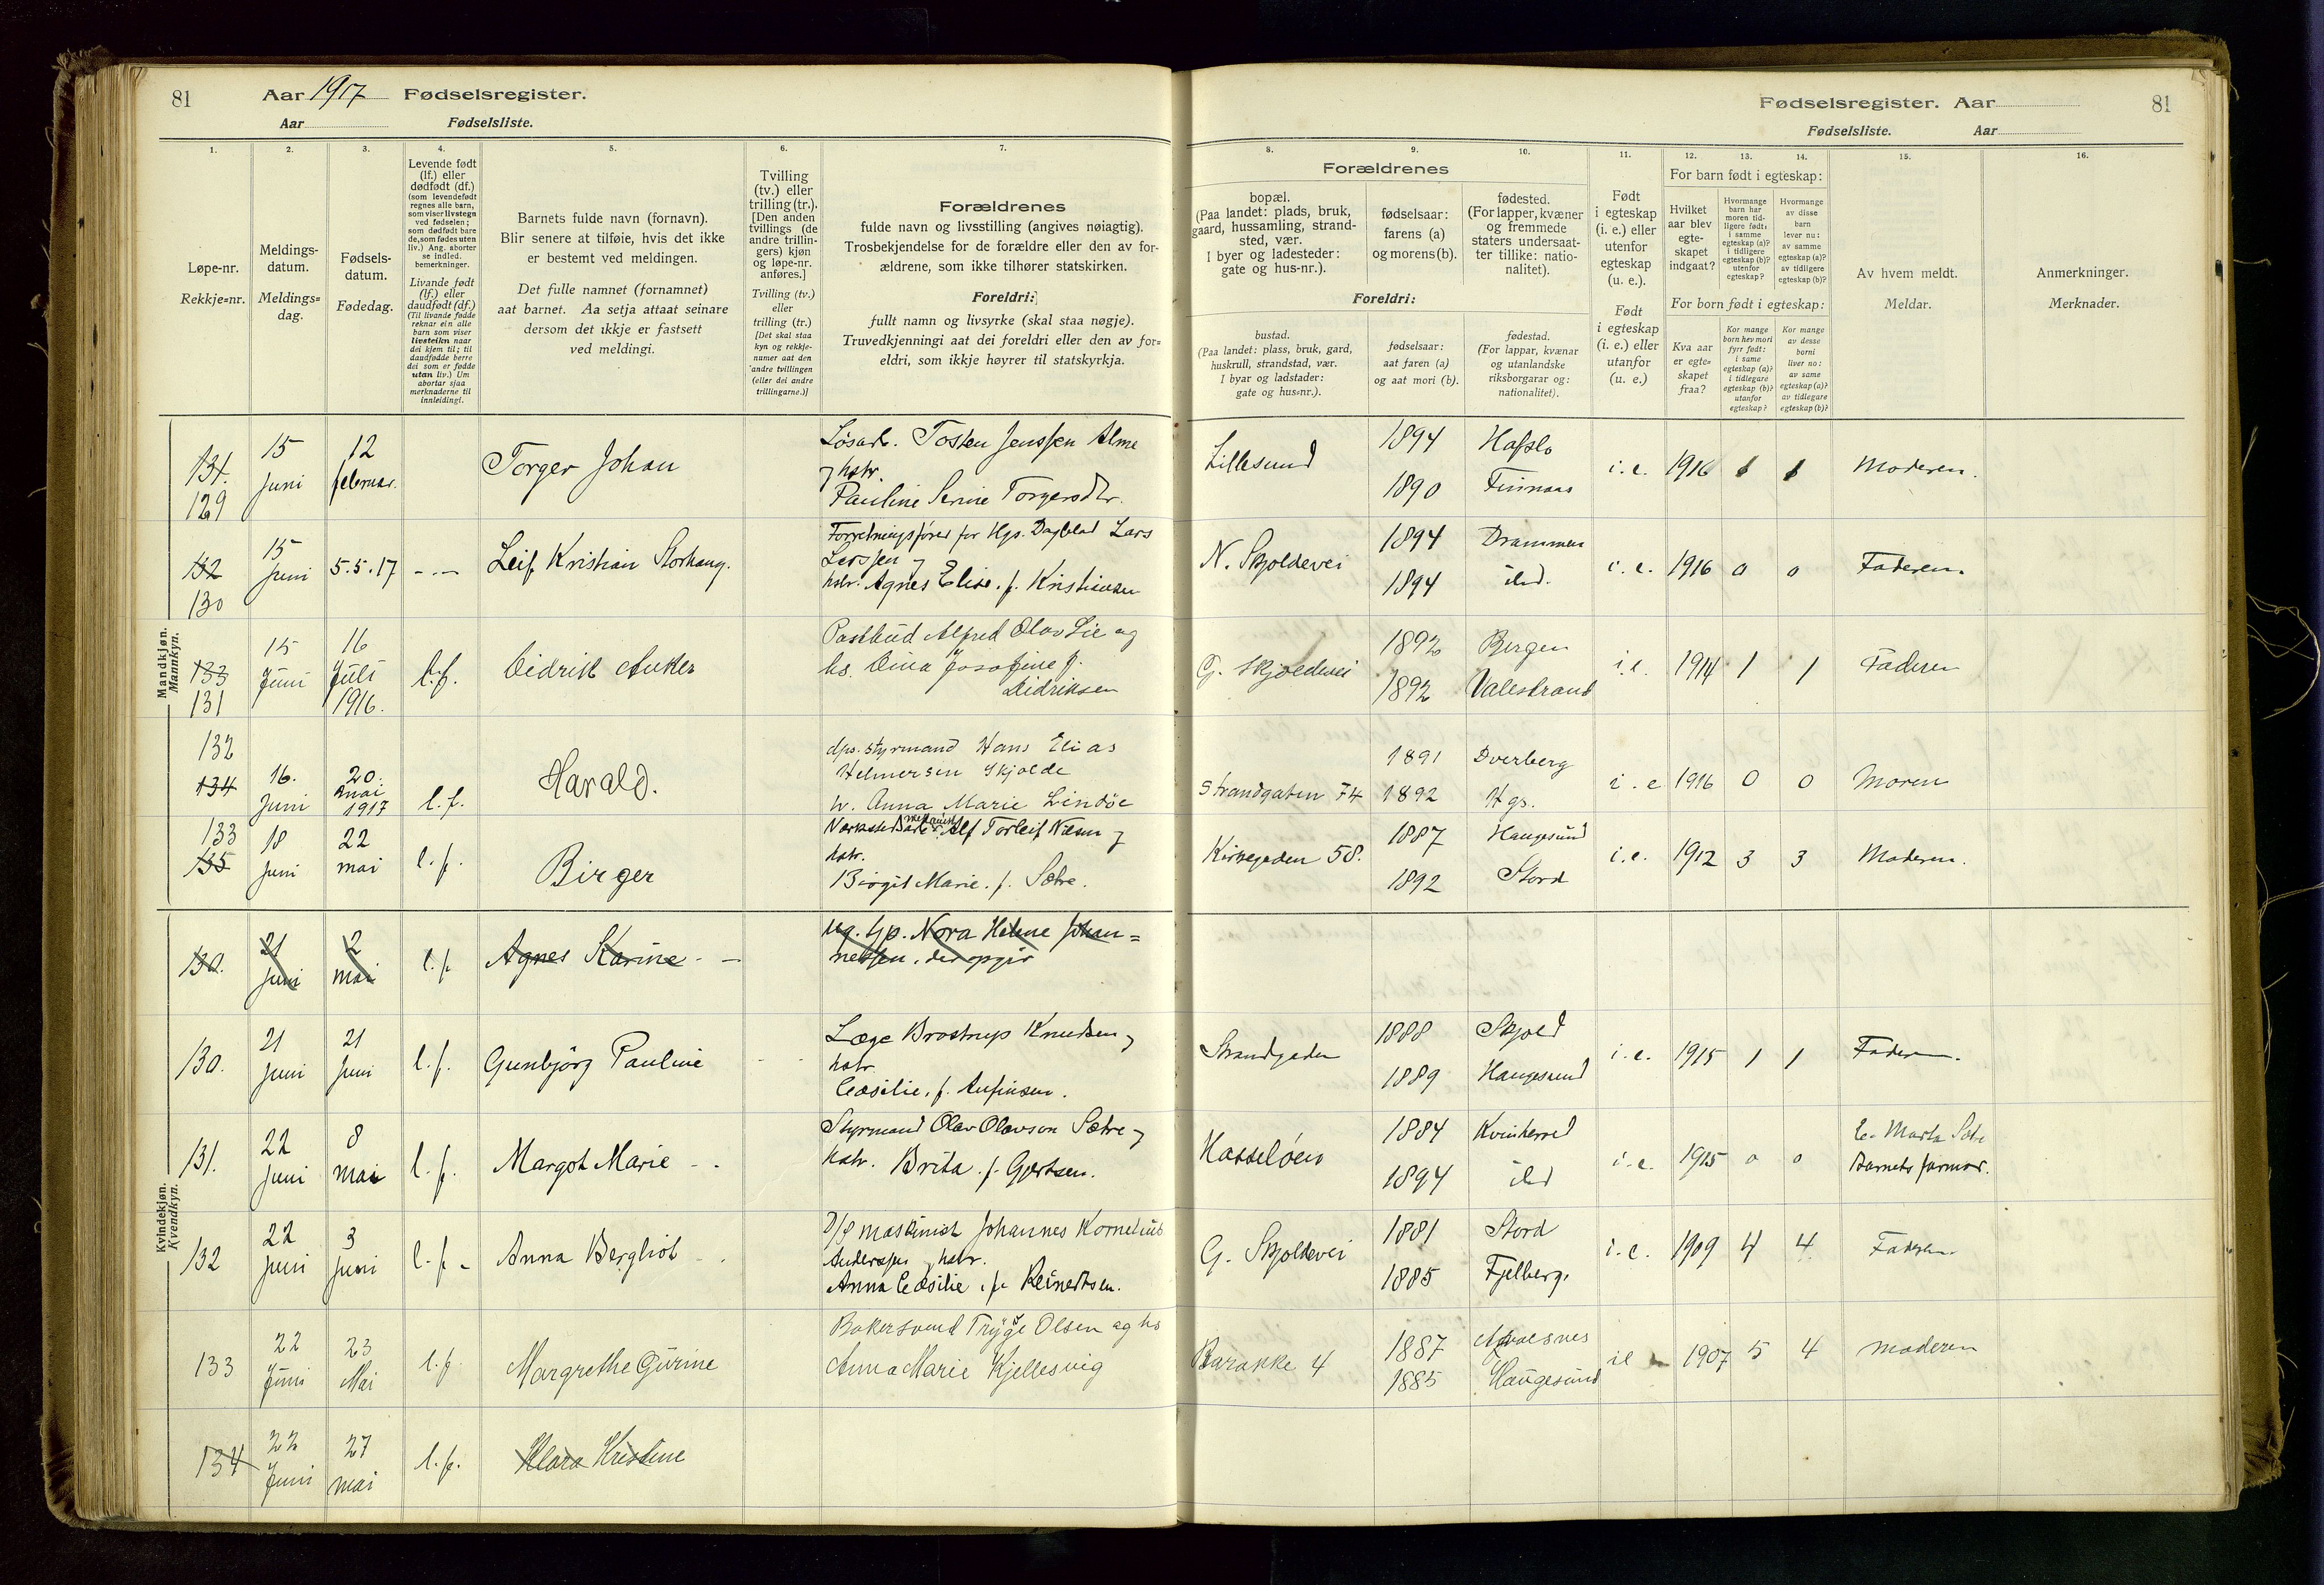 81
Aar 1917 Fødselsregister.
Aar Fødselsliste.
Fødselsregister. Aar
81
Fødselsliste. Aar
1. 2. 3. 4. 5. 6. 7.
Løpe-nr.
Rekkje=nr.
Meldings-
datum.
Meldings=
dag.
Fødsels-
datum.
Fødedag.
Levende født
(lf.) eller
dødfødt (df.)
(som levendefødt
regnes alle barn,
som viser livstegn
ved fødselen;
som dødfødt bare
de, som fødes uten
liv.) Ang. aborter
se indled.
bemerkninger.
Livande født
(lf.) eller
daudfødt (df.)
(Til livande fødde
reknar ein alle
barn som viser
livsteikn naar
dei kjem til; til
daudfødde berre
dei som er fødde
utan liv.) Um
abortar sjaa
merknaderne til
innleidingi.
Barnets fulde navn (fornavn).
Blir senere at tilføie, hvis det ikke
er bestemt ved meldingen.
Det fulle namnet (fornamnet)
aat barnet. Aa setja attaat seinare
dersom det ikkje er fastsett
ved meldingi.
Tvilling
(tv.) eller
trilling (tr.).
[Den anden
tvillings (de
andre trillin-
gers) kjøn
og løpe-nr.
anføres.]
Tvilling (tv.)
eller
trilling (tr.)
[Det skal staa
kyn og rekkje-
numer aat den
andre tvillingen
(eller dei andre
trillingarne.)]
Forældrenes
fulde navn og livsstilling (angives nøiagtig).
Trosbekjendelse for de forældre eller den av for-
ældrene, som ikke tilhører statskirken.
Foreldri:
fullt namn og livsyrke (skal staa nøgje).
Truvedkjenningi aat dei foreldri eller den av for=
eldri, som ikkje høyrer til statskyrkja.
8. 9. 10. 11. 12. 13. 14. 15. 16.
Forældrenes
bopæl.
(Paa landet: plads, bruk,
gaard, hussamling, strand-
sted, vær.
I byer og ladesteder:
gate og hus-nr.).
fødselsaar:
farens (a)
og morens (b).
fødested.
(For lapper, kvæner
og fremmede
staters undersaat-
ter tillike: natio-
nalitet).
Foreldri:
bustad.
(Paa landet: plass, bruk, gard,
huskrull, strandstad, vær.
I byar og ladstader:
gate og hus=nr.).
fødselsaar:
aat faren (a)
og aat mori (b).
fødestad.
(For lappar, kvænar
og utanlandske
riksborgarar og:
nationalitet).
Født
i egteskap
(i. e.) eller
utenfor
egteskap
(u. e.).
Født
i egteskap
(i. e.) eller
utanfor
(u. e.)
For barn født i egteskap:
Hvilket
aar blev
egte-
skapet
indgaat?
Hvormange
barn har
moren tid-
ligere født:
i samme
egteskap (a)?
i tidligere
egteskap (b)?
utenfor
egteskap?
Hvormange
av disse
barn
lever nu:
av samme
egteskap (a)?
av tidligere
egteskap (b)?
For born født i egteskap:
Kva aar
er egte=
skapet
fraa?
Kor mange
born hev mori
fyrr født:
i same
egteskap (a)?
i tidlegare
egteskap (b)?
utanfor
egteskap?
Kor mange
av desse
borni
liver no:
av same
egteskap (a)?
av tidlegare
egteskap (b)?
Av hvem meldt.
Meldar.
Anmerkninger.
Merknader.
Mandkjøn.
Mannkyn.
131. 129 15 Juni 12 februar. Torger Johan
Løsarb. Tosten Jenssen Alme
og hstr.
Pauline Serine Torgersdtr.
Lillesund 1894 1890 Hafslo Finnaas i.e. 1916 1 1 Moderen.
132 130 15 Juni 5.5.17 Leif Kristian Storhaug.
Forretningsfører for Hgs. Dagblad Lars
Larssen og
hstr. Agnes Elise. f. Kristiansen
N. Skjoldevei 1894 1894 Drammen ibd. i.e. 1916 0 0 Faderen.
133 131 15 Juni 16 Juli 1916. l.f. Didrik Anker
Postbud Alfred Olav Lie og
hs. Dina Josofine f.
Didriksen
G. Skjoldevei 1892 1892 Bergen Valestrand i.e. 1914 1 1 Faderen
132 134 16. Juni 20. mai 1917 l.f. Harald.
dps. styrmand Hans Elias
Helmersen Skjolde
h. Anna Marie Lindöe
Strandgaten 74 1891 1892 Dverberg Hgs. i.e 1916 0 0 Moren
133 135 18 Juni 22 mai l.f. Birger
Alf Torleif Nilsen og
hstr.
Birgit Marie. f. Sætre.
Kirkegaden 58. 1887 1892 Haugesund Stord i.e. 1912 3 3 Moderen.
Kvindekjøn.
Kvendkyn.
130. 21 Juni 2 mai l.f. Agnes Karine
ug. tjp. Nora Helene Johan=
nessen, der opgir
130. 21 Juni 21 Juni l.f. Gunbjörg Pauline
Læge Brostrup Knudsen og
hstr.
Cæsilie. f. Anfinsen.
Strandgaden 1888 1889 Skjold Haugesund i.e. 1915 1 1 Faderen.
131. 22 Juni 8 mai l.f. Margot Marie
Styrmand Olav Olavson Sætre og
hstr. Brita. f. Gjertsen.
Hasseløen 1884 1894 Kvinherred ibd i.e. 1915 0 0 Marta Sætre
Barnets farmor.
132 22 Juni 3 Juni l.f. Anna Bergliot
D/S maskinist Johannes Kornelius
Anderssen og hstr.
Anna Cæsilie. f. Reinertsen.
G. Skjoldevei 1881 1885 Stord Fjelberg. i.e. 1909 4 4 Faderen
133 22 Juni 23 Mai l.f. Margrethe Gurine
Bakersvend Trygve Olsen og hs
Anna Marie Kjellesvig
Barakke 4 1887 1885 Haugesund ie 1907 5 4 Moderen
134 22 Juni 27 mai l.f. Klara Kristine